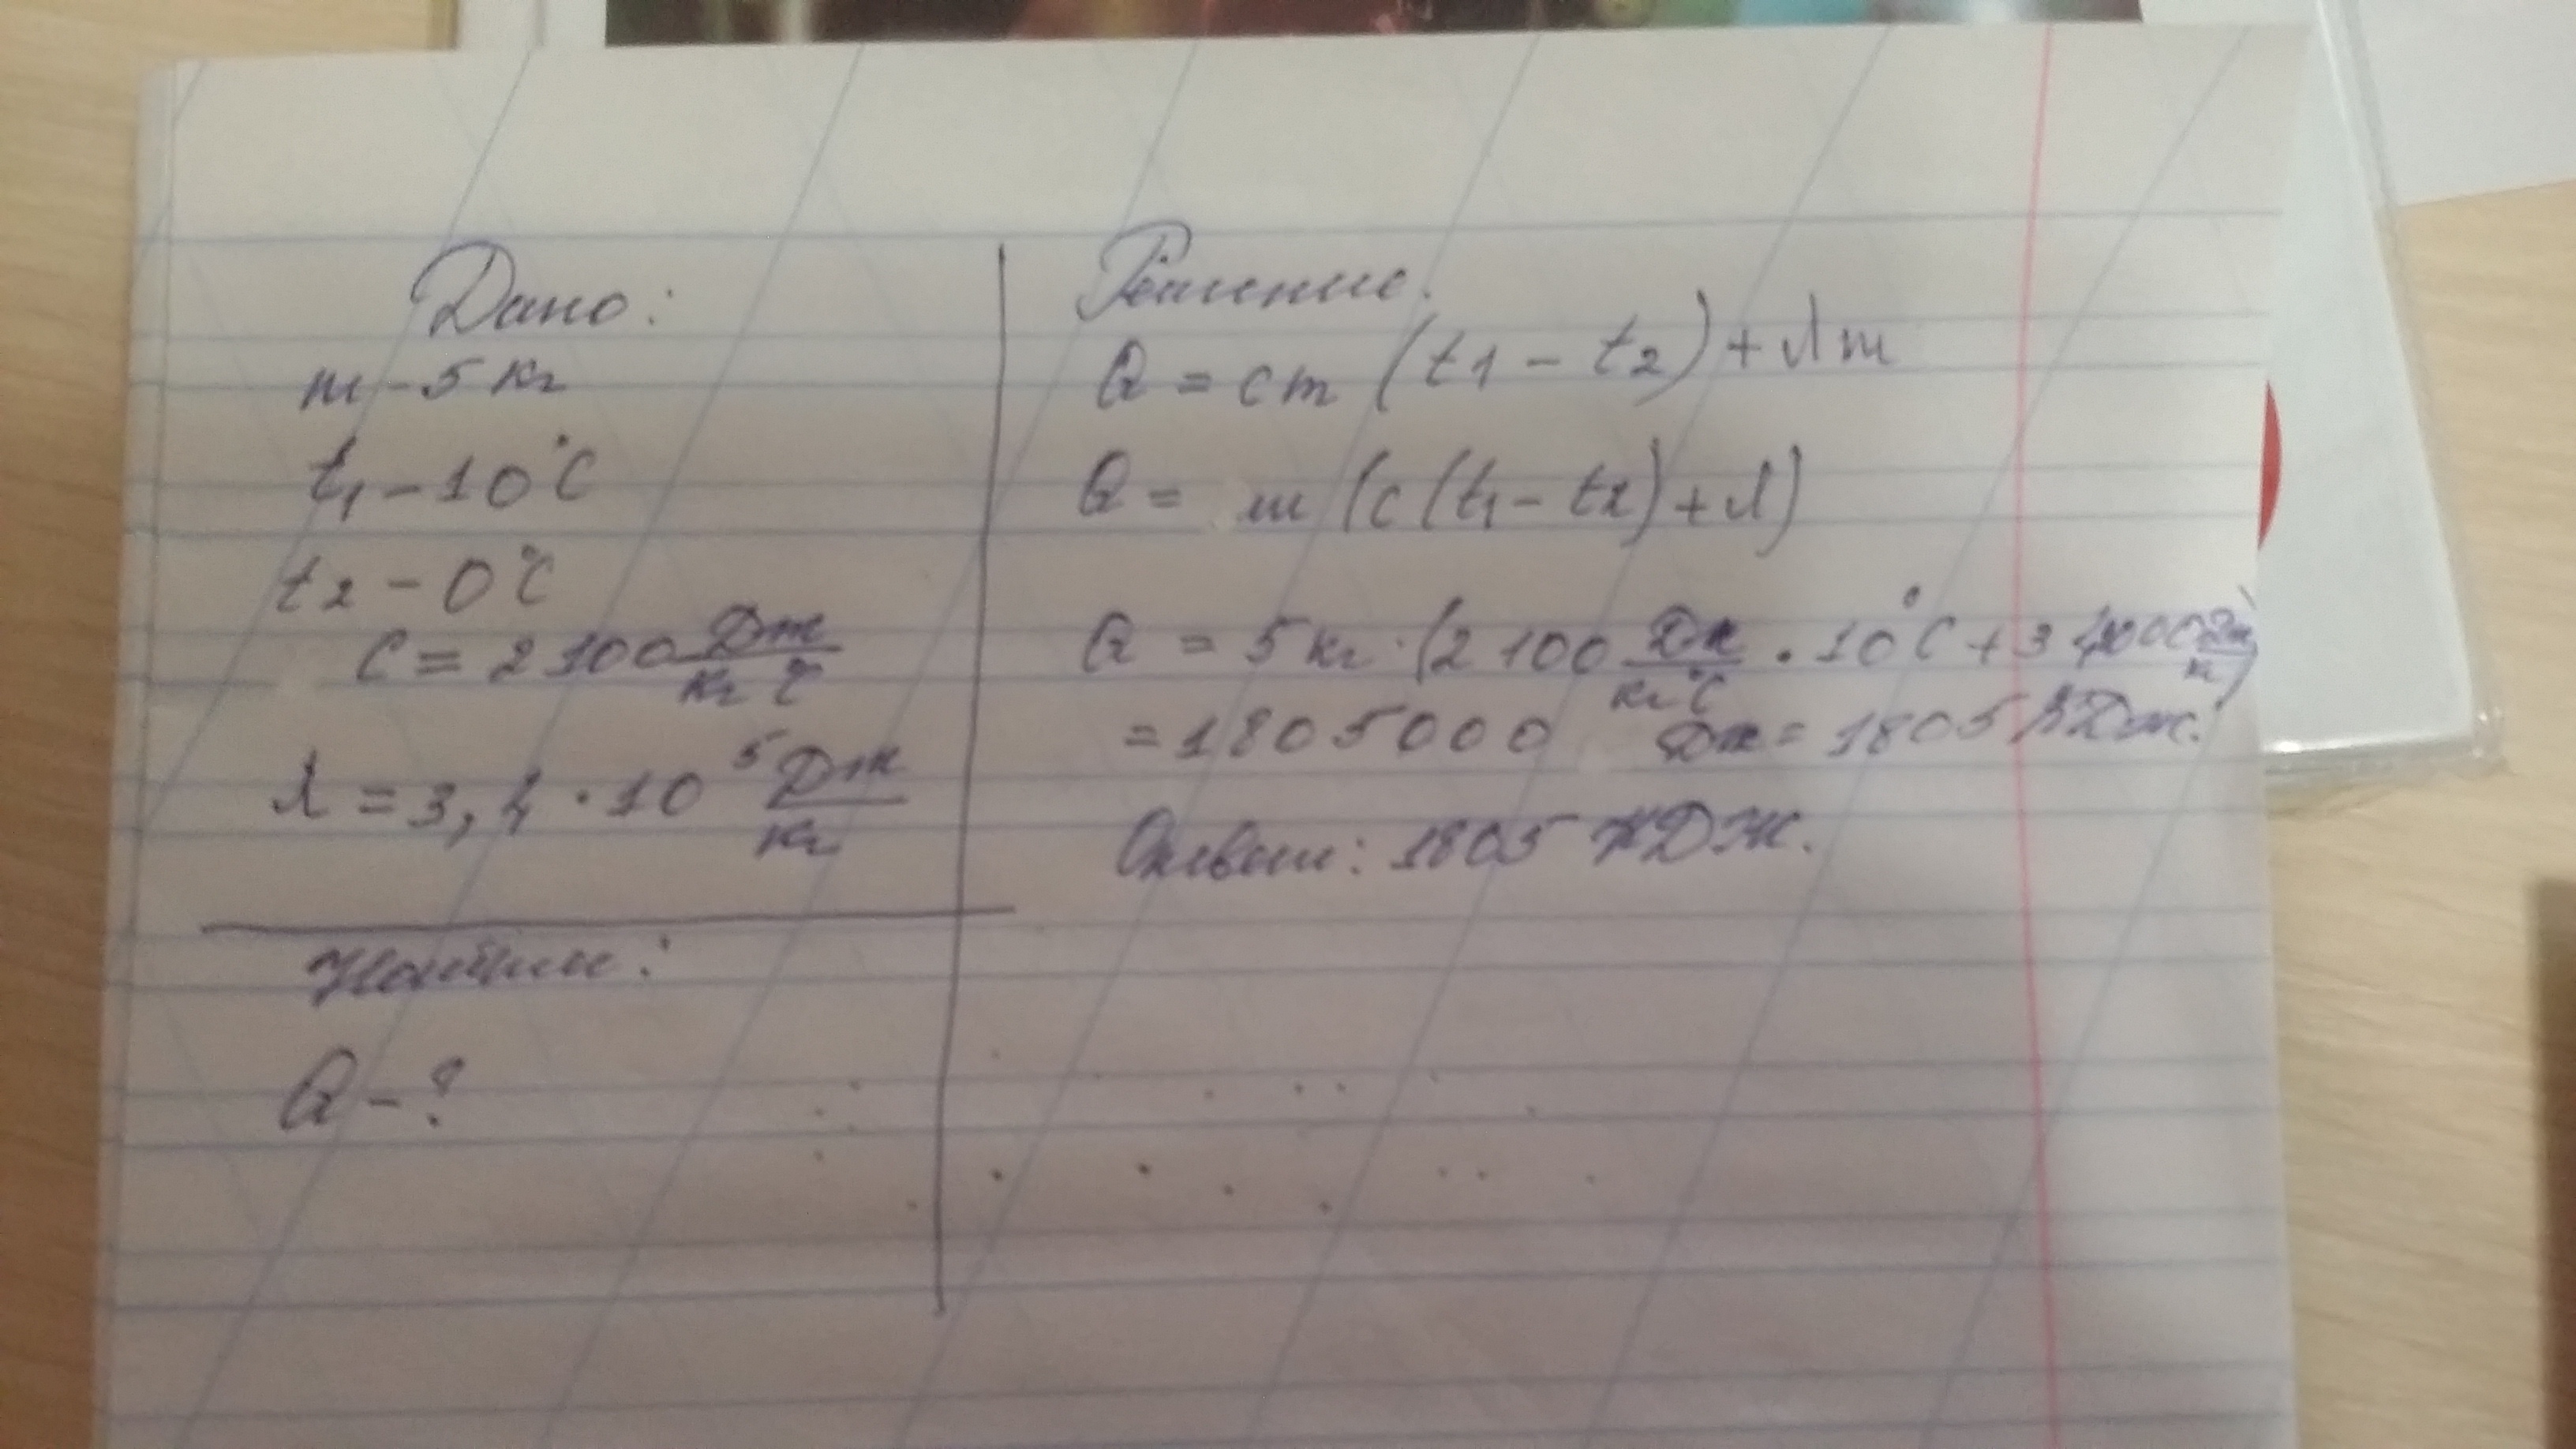 Дано:
m - 5 кг
t1 - 10°C
t2 - 0°C
C = 2 100 Дж/кг°C
λ = 3,4 · 10^5 Дж/кг
Найти:
Q - ?
Решение.
Q = cm (t1 - t2) + λm
Q = m (c (t1 - t2) + λ)
Q = 5 кг · (2 100 Дж/кг°C · 10°C + 340000 Дж/кг)
= 1805000 Дж = 1805 кДж.
Ответ: 1805 кДж.